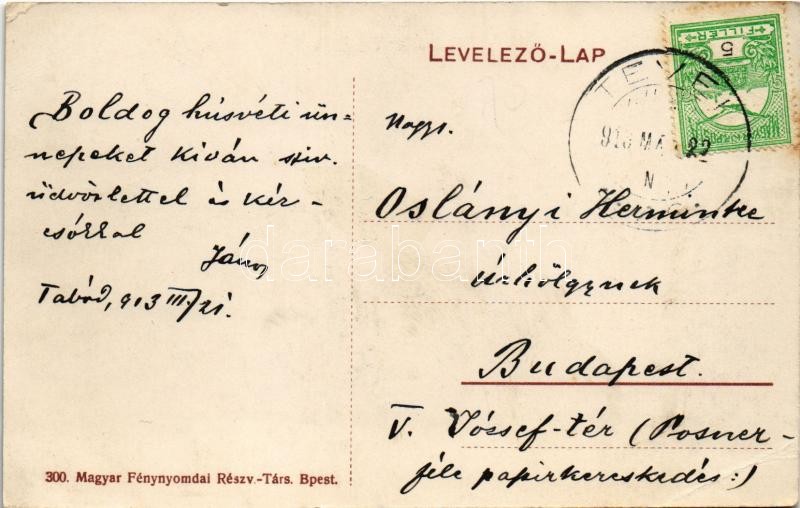 LEVELEZŐ-LAP
FILLÉR
5
TEVEL
913 MÁR 22
N
Boldog húsvéti ün-
nepeket kiván sziv.
üdvözlettel és kéz-
csókkal
János
Tabód, 913 III/21.
Nagys.
Oslányi Herminke
úrhölgynek
Budapest.
V. József-tér (Posner-
féle papirkereskedés:)
300. Magyar Fénynyomdai Részv.-Társ. Bpest.
darabanth